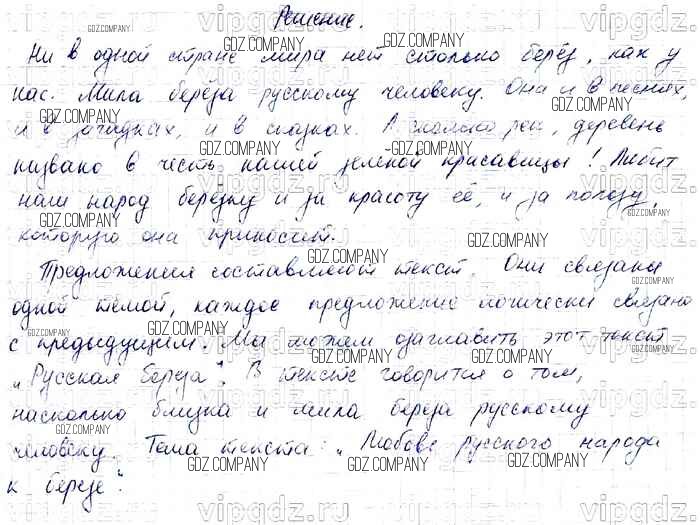 Решение.
Ни в одной стране мира нет столько берёз, как у
нас. Мила берёза русскому человеку. Она и в песнях,
и в загадках, и в сказках. А сколько рек, деревень
названо в честь нашей зелёной красавицы! Любит
наш народ берёзку и за красоту её, и за пользу,
которую она приносит.
Предложения составляют текст. Они связаны
одной темой, каждое предложение логически связано
с предыдущим. Мы можем озаглавить этот текст
„Русская берёза". В тексте говорится о том,
насколько близка и мила береза русскому
человеку. Тема текста: „Любовь русского народа
к березе".